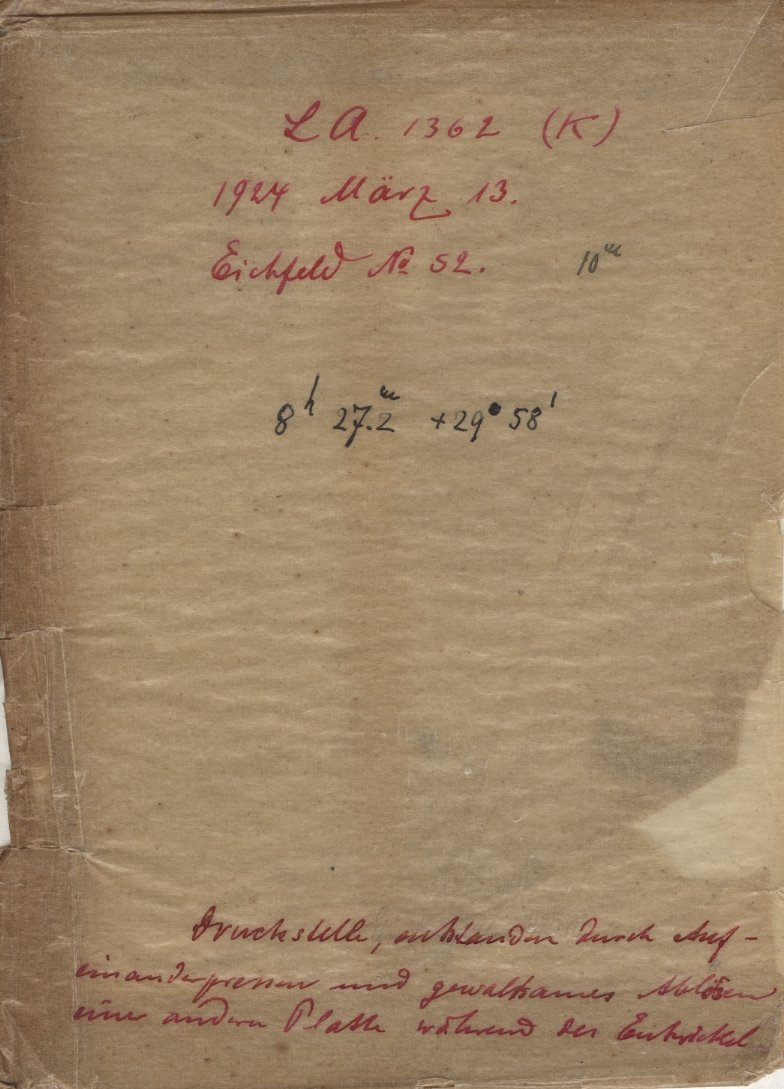 LA. 1362 (K)
1924 März 13.
Eichfeld № 52. 10ᵐ
8ʰ 27.2ᵐ +29° 58'
Druckstelle, entstanden durch Auf-
einanderpressen und gewaltsames Ablösen
einer andern Platte während des Entwickel